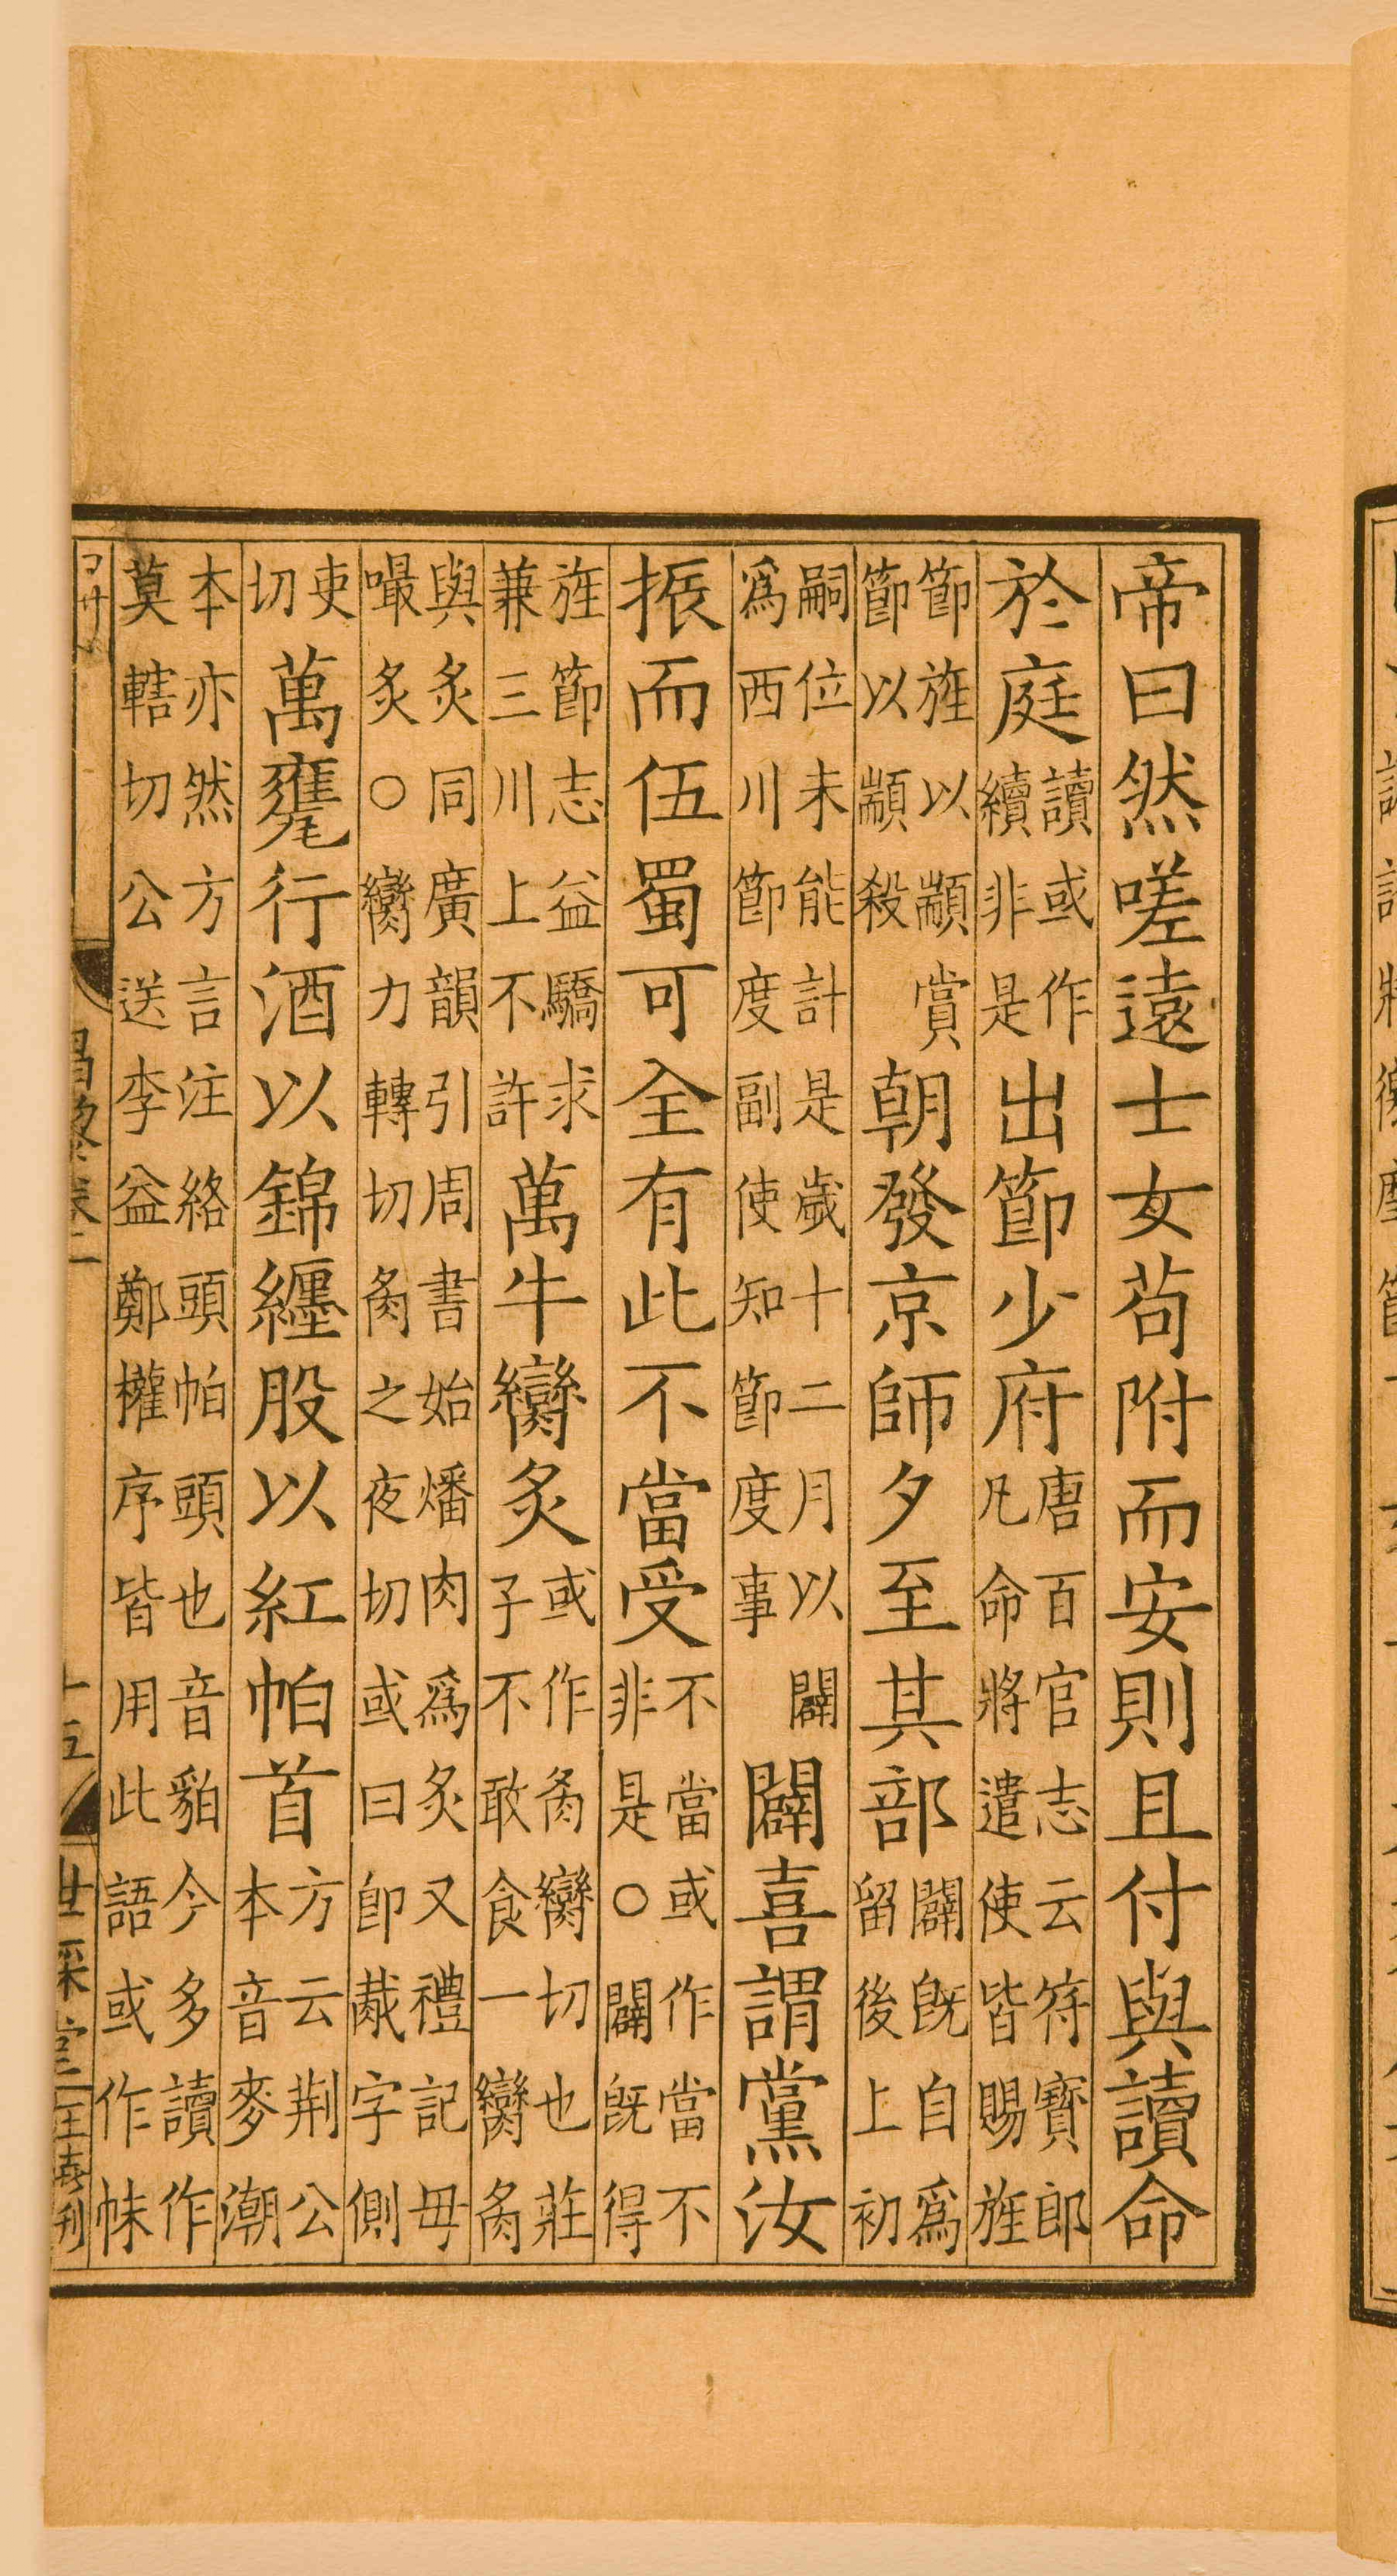 帝曰然嗟遠士女苟附而安則且付與讀命
於庭讀或作續非是出節少府唐百官志云符寶郎凡命將遣使皆賜旌
節旌以顓賞節以顓殺朝發京師夕至其部闢旣自爲留後上初
嗣位未能計是歲十二月以闢爲西川節度副使知節度事闢喜謂黨汝
振而伍蜀可全有此不當受不當或作當不非是○闢旣得
旌節志益驕求兼三川上不許萬牛臠炙或作臠切也莊子不敢食一臠
與炙同廣韻引周書始燔肉爲炙又禮記毋嘬炙○臠力轉切之夜切或曰卽胾字側
吏切萬甕行酒以錦纏股以紅帕首方云荆公本音麥潮
本亦然方言注絡頭帕頭也音貊今多讀作莫轄切公送李益鄭權序皆用此語或作帓
昌黎卷二
十五
世綵堂